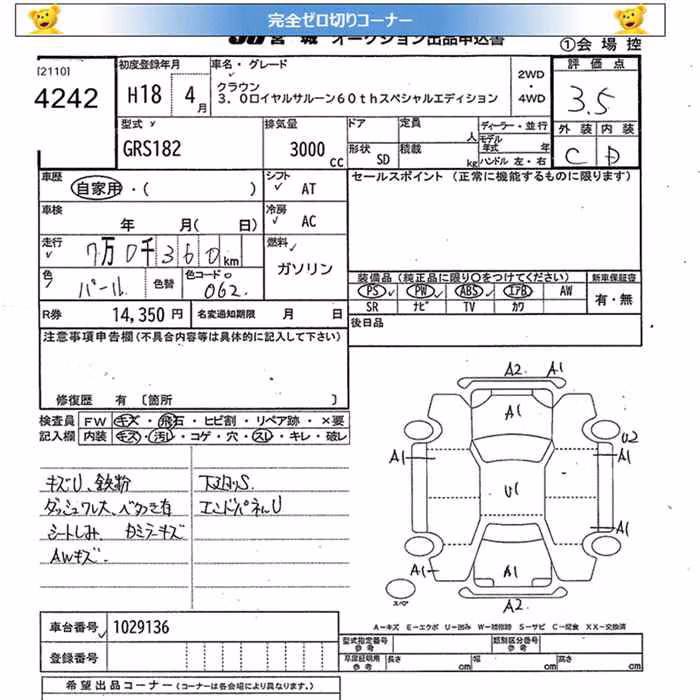 完全ゼロ切りコーナー
JU宮城 オークション出品申込書
①会場控
[2110]
4242
初度登録年月
H18 4月
車名・グレード
クラウン
3.0ロイヤルサルーン60thスペシャルエディション
2WD
・
4WD
評価点
3.5
外装 内装
C D
型式
GRS182
排気量
3000cc
ドア
定員
人
形状
SD
積載
kg
ディーラー・並行
モデル
年式
年
ハンドル 左・右
車歴
自家用・( )
シフト
AT
車検
年 月( 日)
冷房
AC
走行
7万0千360km
燃料
ガソリン
色
パール
色替
色コードNo
062
R券
14,350 円
名変通知期限 月 日
セールスポイント (正常に機能するものに限ります)
装備品(純正品に限り○をつけてください)
新車保証書
PS PW ABS エアB AW
有・無
SR ナビ TV カワ
後日品
注意事項申告欄(不具合内容等は具体的に記入して下さい)
修復歴 有〔箇所 〕
検査員
記入欄
FW キズ・飛石・ヒビ割・リペア跡・×要
内装 キズ・汚レ・コゲ・穴・スレ・キレ・破レ
キズU、鉄粉
下廻りS
ダッシュワレ大、ベタつき有
エンドパネルU
シートしみ、
AWキズ
A2 A1
A1
U2
A1
U1
A1
A1
A1
A2
スペア
A-キズ E-エクボ U-凹み W-補修跡 S-サビ C-腐食 XX-交換済
車台番号
1029136
登録番号
型式指定番号
参考
類別区分番号
参考
車庫証明用
参考
長さ cm 幅 cm 高さ cm
希望出品コーナー(コーナーは各会場により異なります。)